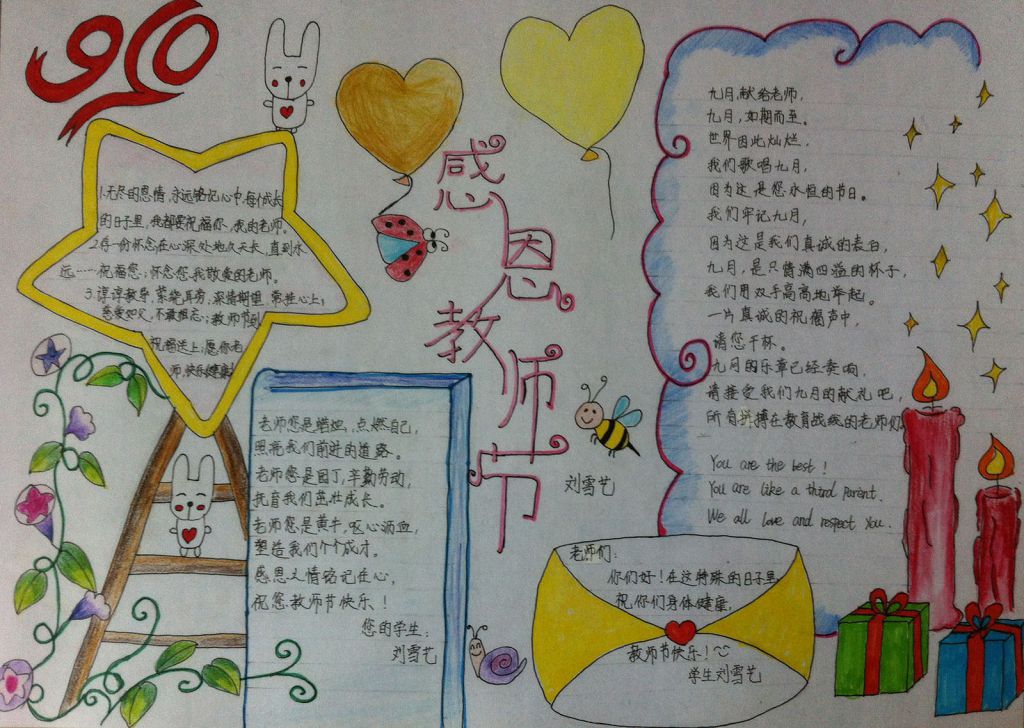 910
感恩教师节
1.无尽的恩情,永远铭记心中.每个成长
的日子里,我都要祝福你,我的老师。
2.有一份怀念在心深处地久天长,直到永
远……祝福您;怀念您.我敬爱的老师。
3.谆谆教导,萦绕耳旁,深情期望,常挂心上;
慈爱如父,不敢相忘;教师节到
祝福送上;愿你老
师,快乐健康!
老师您是蜡烛,点燃自己,
照亮我们前进的道路。
老师您是园丁,辛勤劳动,
抚育我们茁壮成长。
老师您是黄牛,呕心沥血,
塑造我们个个成才。
感恩之情铭记在心,
祝您教师节快乐!
您的学生:
刘雪艺
刘雪艺
九月,献给老师,
九月,如期而至。
世界因此灿烂,
我们歌唱九月,
因为这是您永恒的节日。
我们牢记九月,
因为这是我们真诚的表白,
九月,是只情满四溢的杯子,
我们用双手高高地举起。
一片真诚的祝福声中,
请您干杯。
九月的乐章已经奏响,
请接受我们九月的献礼吧,
所有拼搏在教育战线的老师们
You are the best!
You are like a third parent.
We all love and respect you.
老师们:
你们好!在这特殊的日子里,
祝你们身体健康,
教师节快乐!
学生刘雪艺